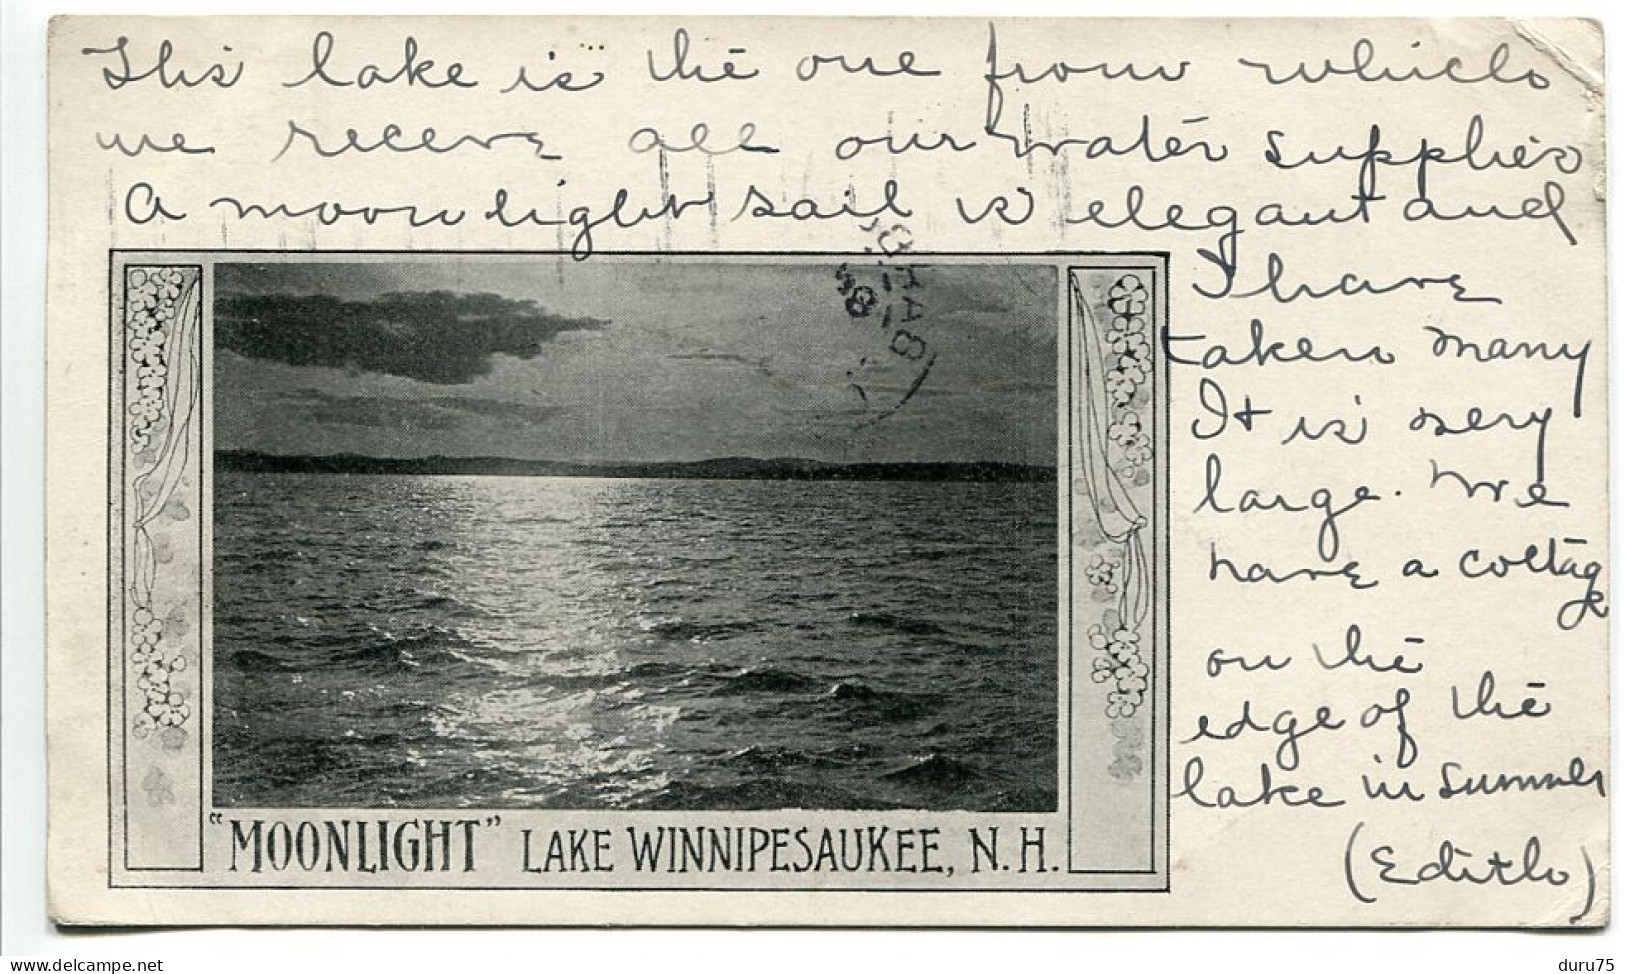 This lake is the one from which
we receve all our water supplies
A moonlight sail is elegant and
I have
taken many
It is very
large. We
have a cottage
on the
edge of the
lake in summer
(Edith)
"MOONLIGHT" LAKE WINNIPESAUKEE, N.H.
delcampe.net
duru75